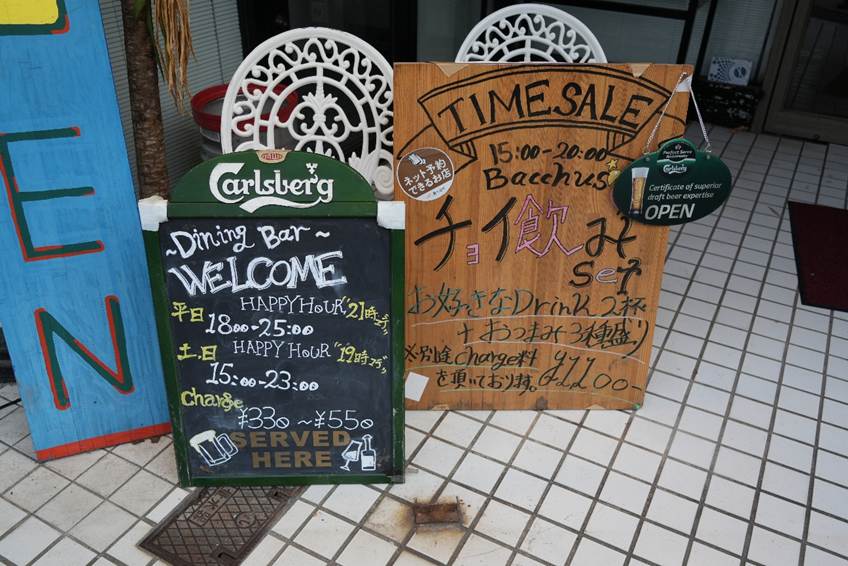 EN
Carlsberg
~Dining Bar~
WELCOME
平日 HAPPY HOUR "21時まで"
18:00-25:00
土.日 HAPPY HOUR "19時まで"
15:00-23:00
Charge
¥330 ~ ¥550
SERVED
HERE
TIME SALE
15:00-20:00
Bacchus
チョイ飲み
Set
お好きなDrink 2杯
+おつまみ3種盛り
※別途Charge料
を頂いております。
ネット予約
できるお店
Perfect Serve
Carlsberg
Certificate of superior
draft beer expertise
OPEN